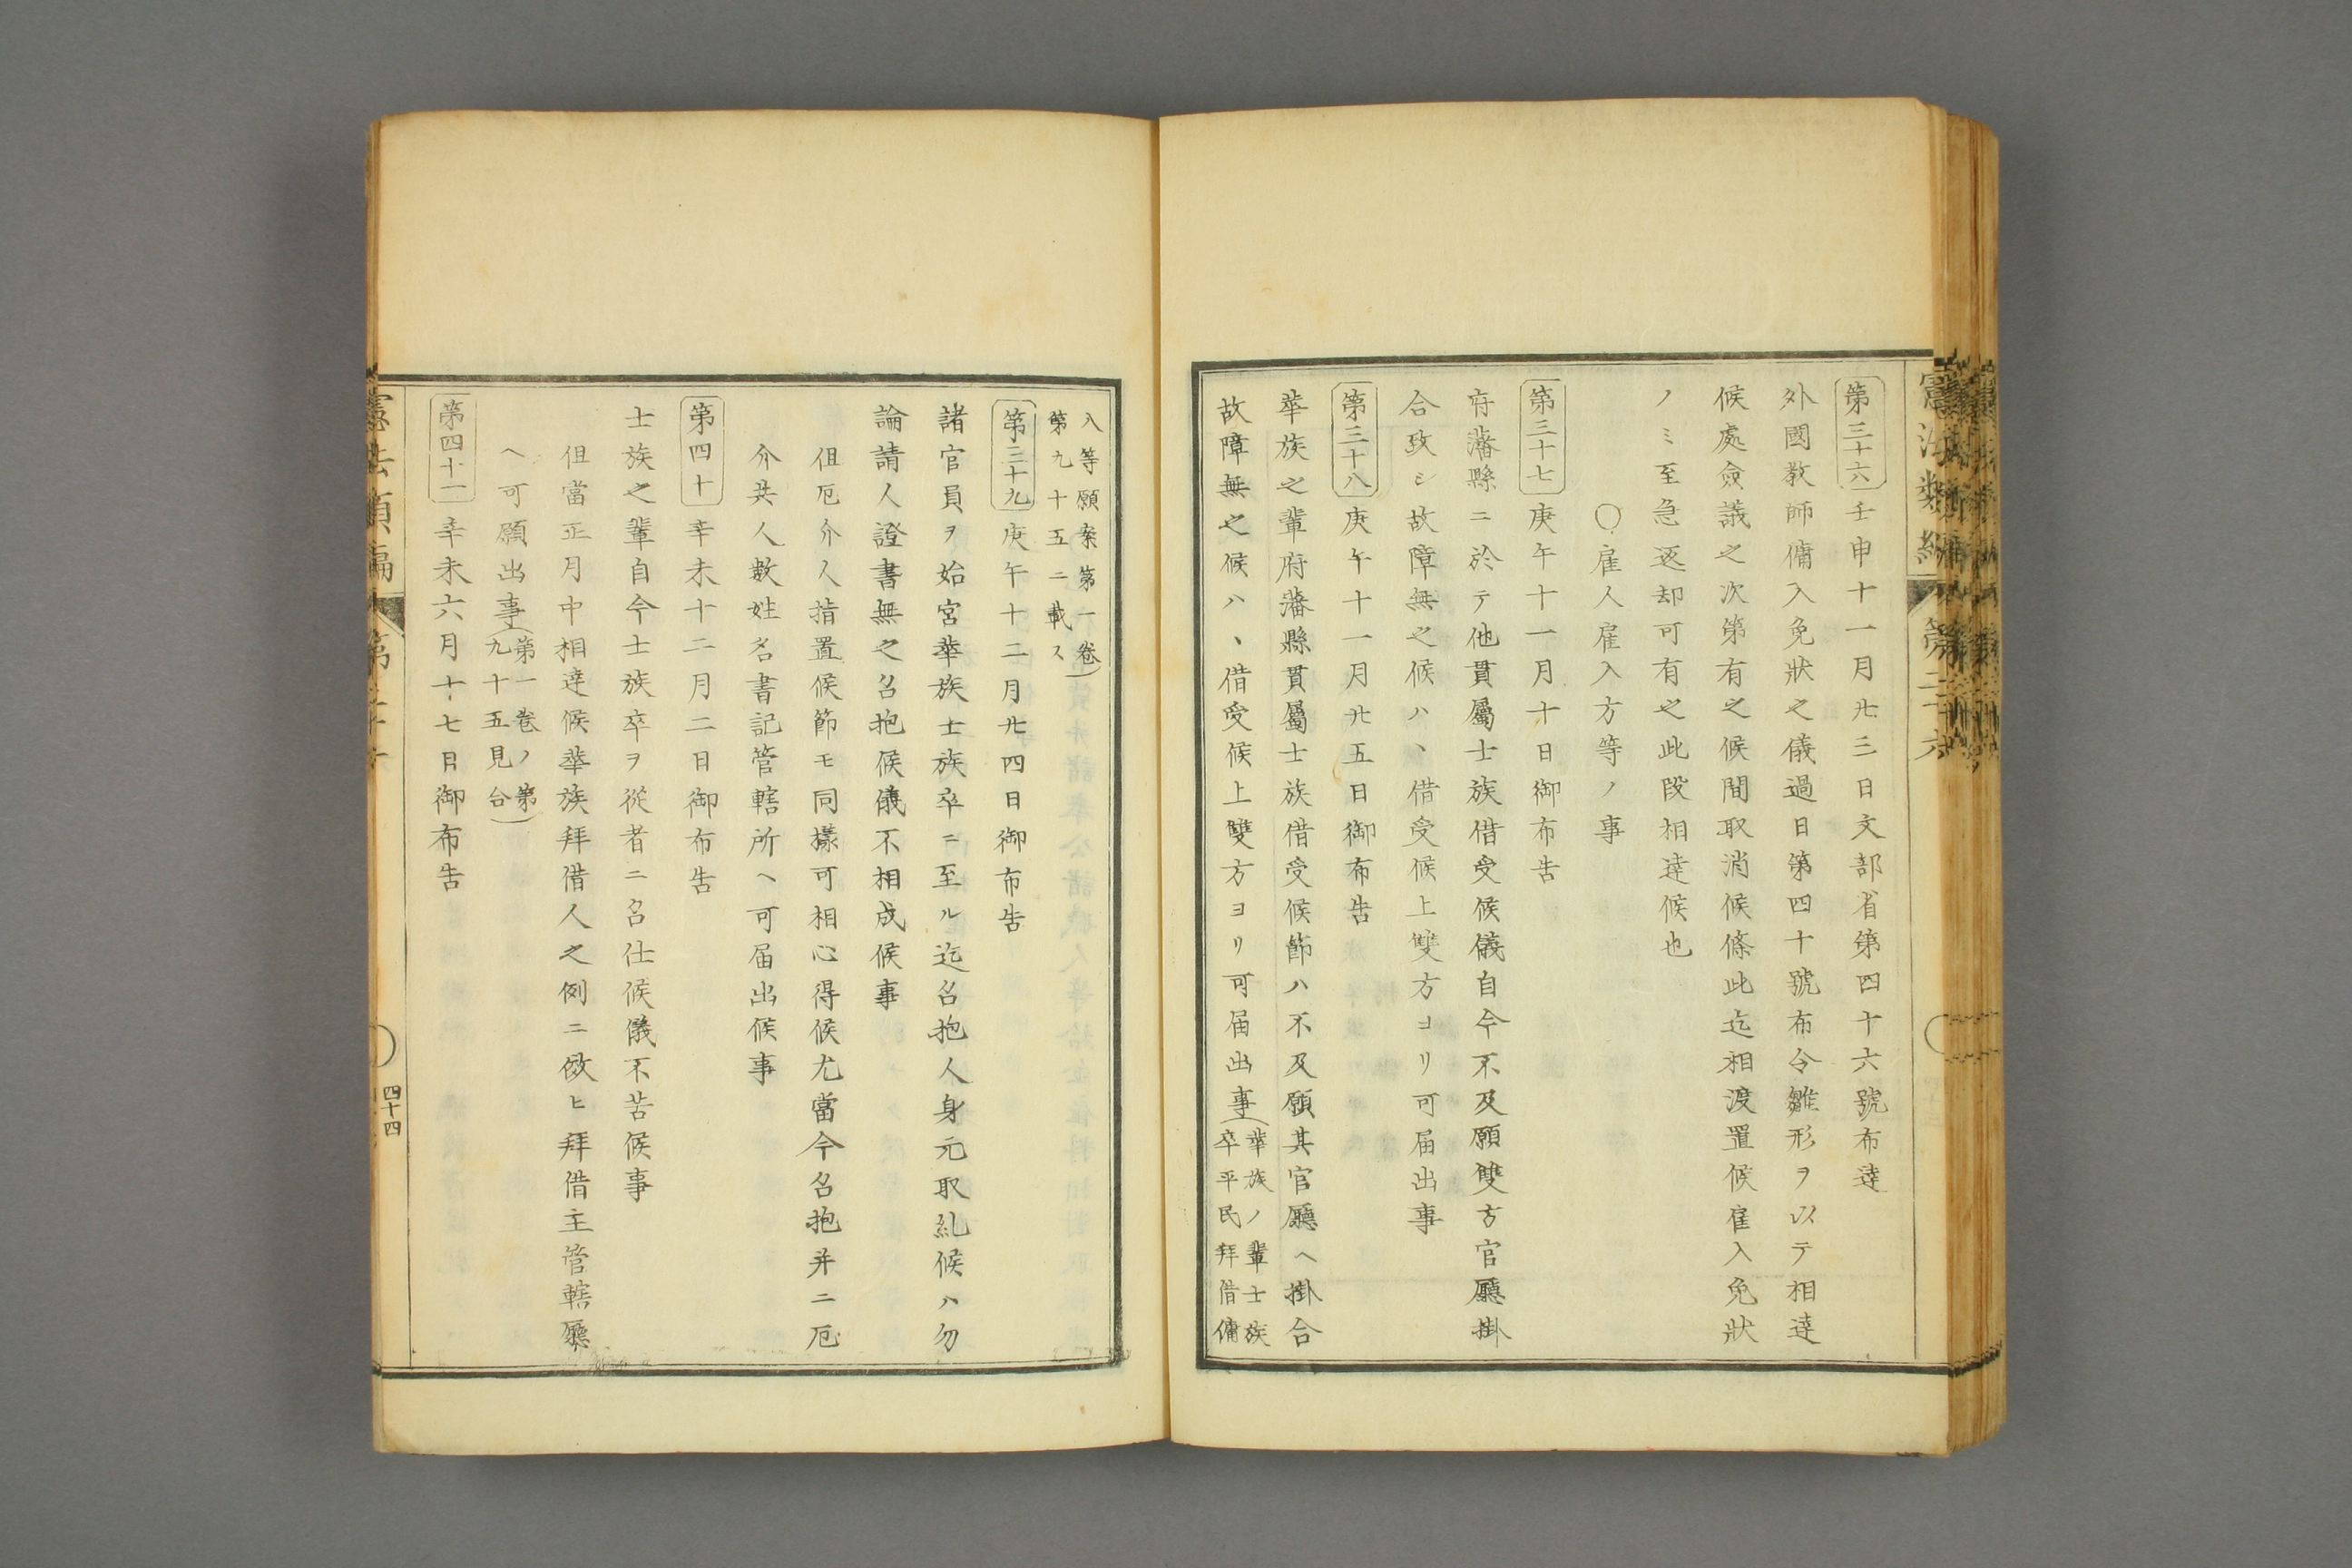 憲法類編 第二十六
第三十六 壬申十一月廿三日文部省第四十六號布達
外國教師傭入免狀之儀過日第四十號布令雛形ヲ以テ相達
候處僉議之次第有之候間取消候條此迄相渡置候雇入免狀
ノミ至急返却可有之此段相達候也
〇雇人雇入方等ノ事
第三十七 庚午十一月十日御布告
府藩縣ニ於テ他貫屬士族借受候儀自今不及願雙方官廳掛
合致シ故障無之候ハヽ借受候上雙方ヨリ可届出事
第三十八 庚午十一月廿五日御布告
華族之輩府藩縣貫屬士族借受候節ハ不及願其官廳ヘ掛合
故障無之候ハヽ借受候上雙方ヨリ可届出事(華族ノ輩士族
卒平民拜借傭
入等願案第一卷
第九十五ニ載ス)
第三十九 庚午十二月廿四日御布告
諸官員ヲ始宮華族士族卒ニ至ル迄召抱人身元取糺候ハ勿
論請人證書無之召抱候儀不相成候事
但厄介人指置候節モ同樣可相心得候尤當今召抱并ニ厄
介共人數姓名書記管轄所ヘ可届出候事
第四十 辛未十二月二日御布告
士族之輩自今士族卒ヲ從者ニ召仕候儀不苦候事
但當正月中相達候華族拜借人之例ニ傚ヒ拜借主管轄廳
ヘ可願出事(第一卷ノ第
九十五見合)
第四十一 辛未六月十七日御布告
憲法類編 第二十
四十四